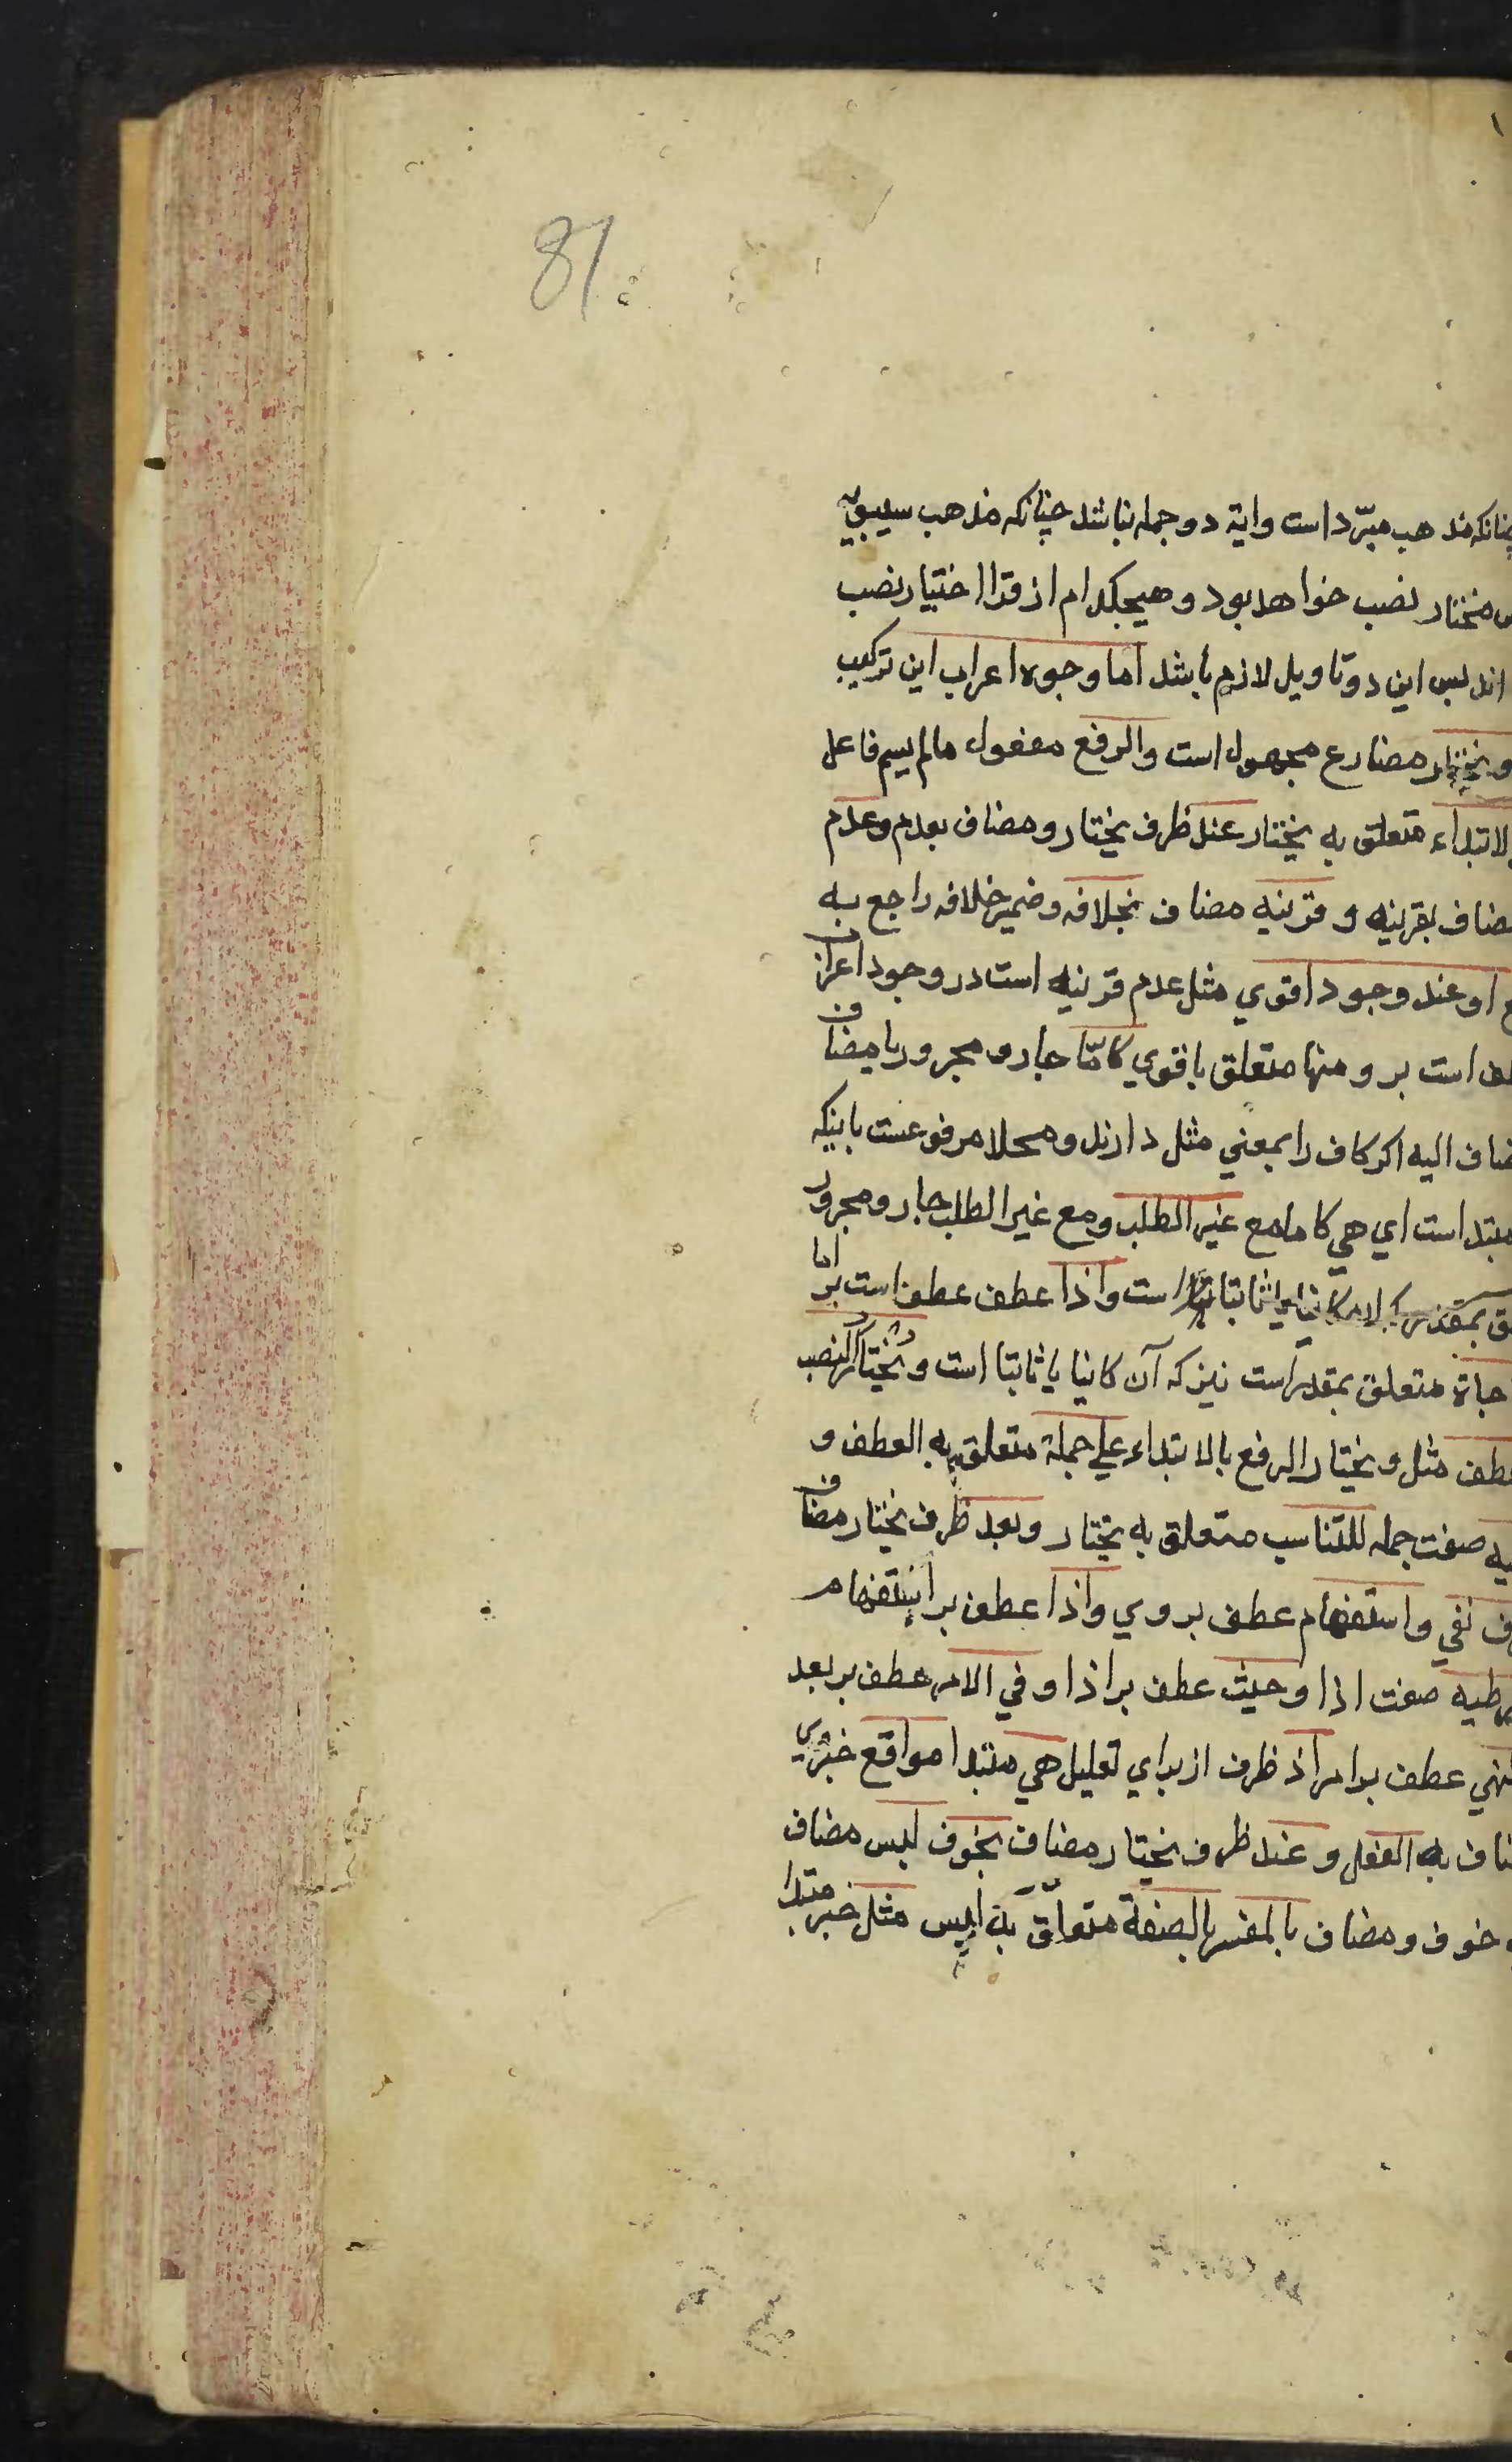 81
چنانکه مذهب مبرّد است و ایة دو جمله نباشد چنانکه مذهب سیبویه
مختار نصب خواهد بود و هیچکدام از قرا اختیار نصب
اند پس این دو تاویل لازم باشد اما وجوه اعراب این ترکیب
و یختار مضارع مجهول است و الرفع مفعول مالم یسم فاعل
لابتداء متعلق به یختار عند ظرف یختار و مضاف بعدم و عدم
مضاف بقرینه و قرینه مضاف بخلافه و ضمیر خلافه راجع به
او عند وجود اقوي مثل عدم قرینه است در وجود اعراف
است برو منها متعلق باقوي كامّا جار و مجرور یا مضاف
ضاف الیه اکر کاف را بمعني مثل دارند و محلا مرفوعست باینکه
مبتداست اي هي كاما مع غیر الطلب و مع غیر الطلب جار و مجرور
ثابتا است و اذا عطف عطف است بر اما
متعلق بمقدر است نیز که آن کاینا یا ثابتا است و یختار النصب
عطف مثل و یختار الرفع بالابتداء علي جملة متعلق به العطف و
یه صفت جمله للتناسب متعلق به یختار و بعد ظرف یختار مضاف
ف نفي و استفهام عطف بروي و اذا عطف بر استفهام
رطیه صفت اذا و حیث عطف بر اذا و في الامر عطف بر بعد
لنهي عطف بر امر اذ ظرف از براي تعلیل هي مبتدا مواقع خبروي
ضاف به الفعل و عند ظرف یختار مضاف بخوف لبس مضاف
خوف و مضاف بالمفسر بالصفة متعلّق به لبس مثل خبر مبتدا